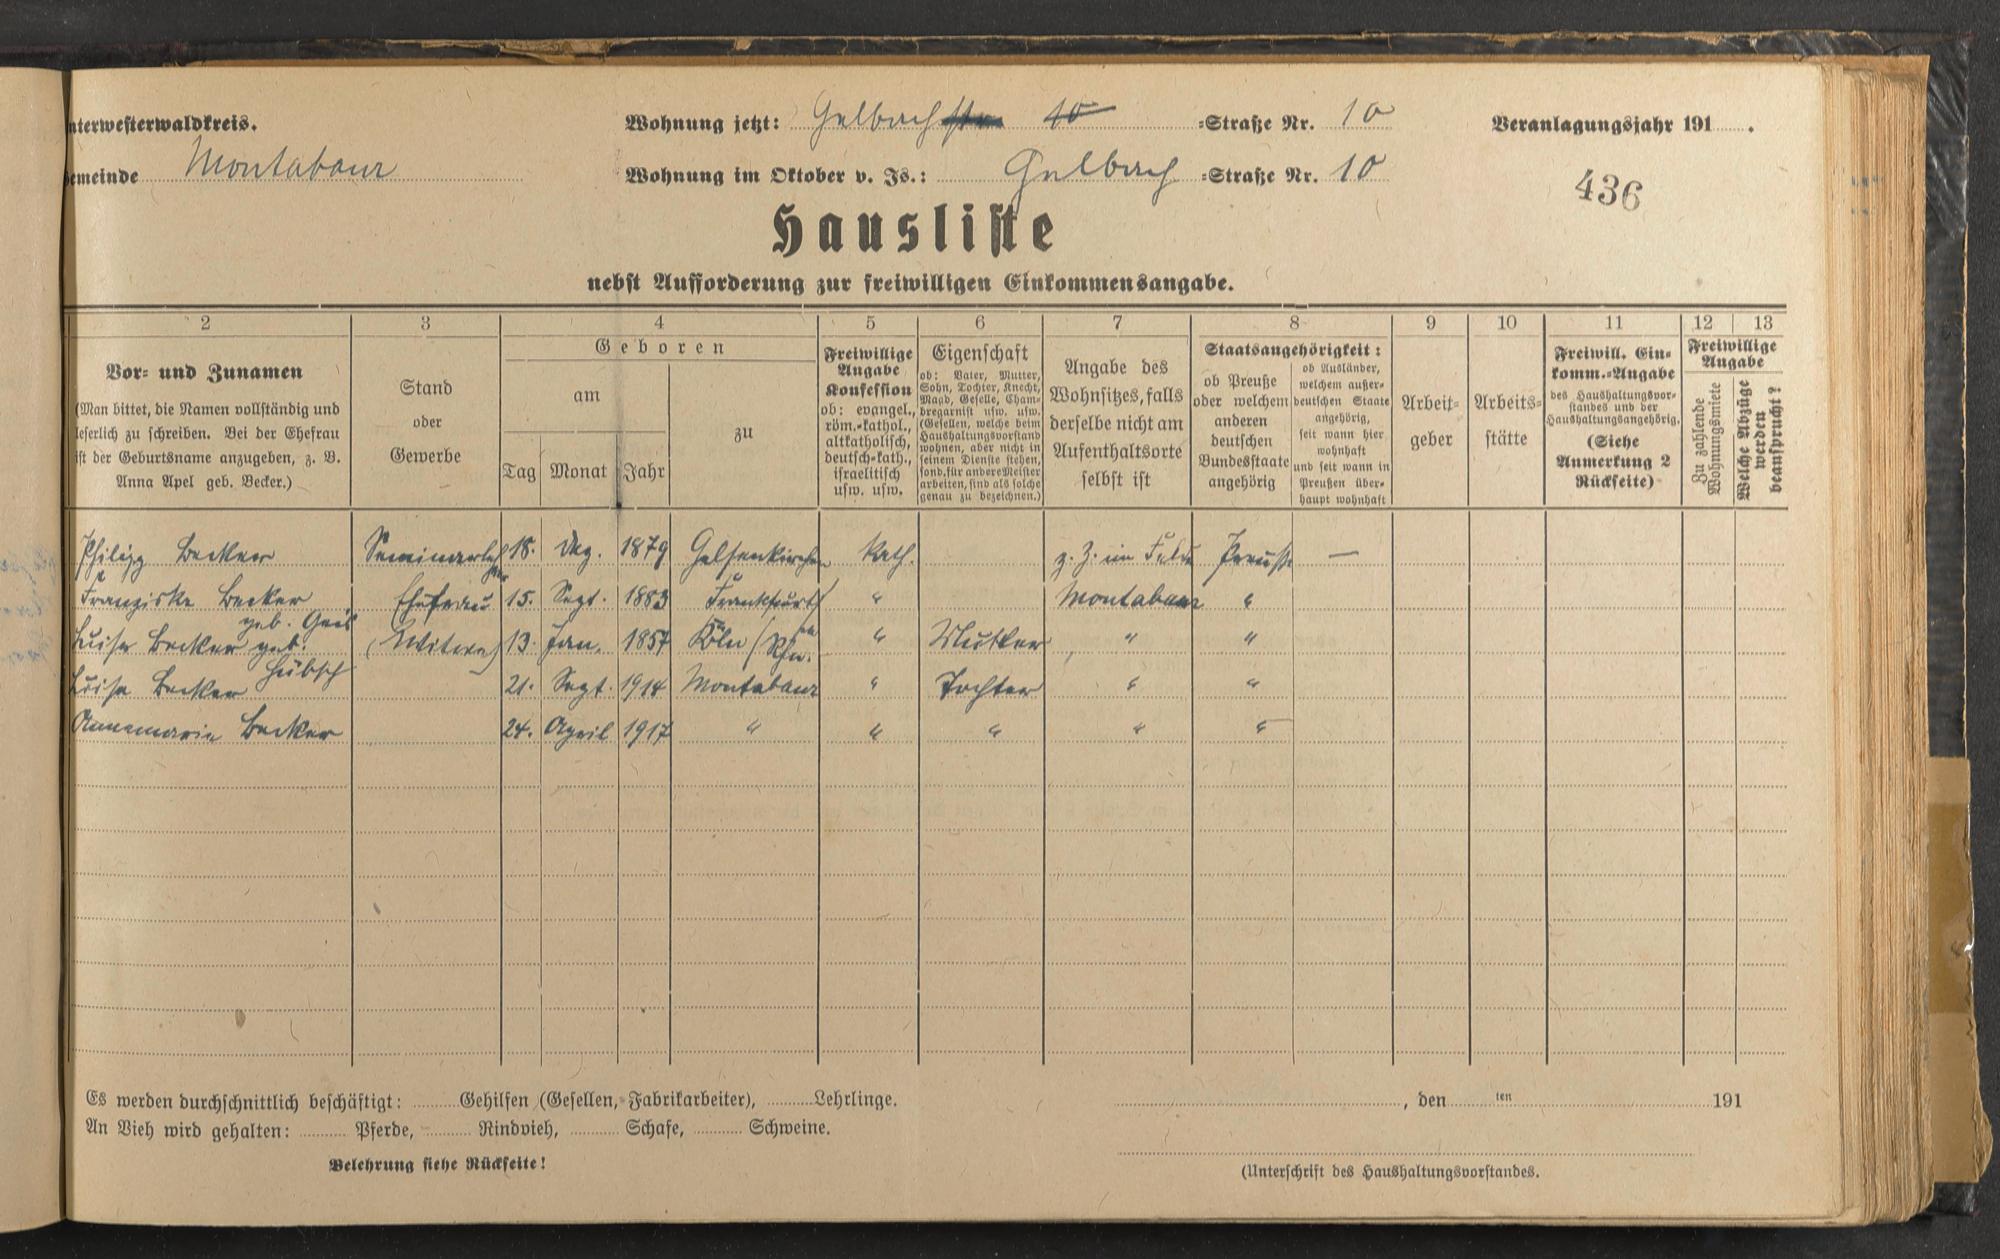 nterwesterwaldkreis.
Wohnung jetzt: Gelbachstr. 10 =Straße Nr. 10
Veranlagungsjahr 191 .
emeinde Montabaur
Wohnung im Oktober v. Js.: Gelbach =Straße Nr. 10
436
Hausliste
nebst Aufforderung zur freiwilligen Einkommensangabe.
2 3 4 5 6 7 8 9 10 11 12 13
Vor- und Zunamen
(Man bittet, die Namen vollständig und
leserlich zu schreiben. Bei der Ehefrau
ist der Geburtsname anzugeben, z. B.
Anna Apel geb. Becker.)
Stand
oder
Gewerbe
Geboren
am
Tag Monat Jahr
zu
Freiwillige
Angabe
Konfession
ob: evangel.,
röm.-kathol.,
altkatholisch,
deutsch-kath.,
israelitisch
usw. usw.
Eigenschaft
ob: Vater, Mutter,
Sohn, Tochter, Knecht,
Magd, Geselle, Cham-
bregarnist usw. usw.
(Gesellen, welche beim
Haushaltungsvorstand
wohnen, aber nicht in
seinem Dienste stehen,
sond. für andere Meister
arbeiten, sind als solche
genau zu bezeichnen.)
Angabe des
Wohnsitzes, falls
derselbe nicht am
Aufenthaltsorte
selbst ist
Staatsangehörigkeit:
ob Preuße
oder welchem
anderen
deutschen
Bundesstaate
angehörig
ob Ausländer,
welchem außer-
deutschen Staate
angehörig,
seit wann hier
wohnhaft
und seit wann in
Preußen über-
haupt wohnhaft
Arbeit-
geber
Arbeits-
stätte
Freiwill. Ein-
komm.-Angabe
des Haushaltungsvor-
standes und der
Haushaltungsangehörig.
(Siehe
Anmerkung 2
Rückseite)
Freiwillige
Angabe
Zu zahlende
Wohnungsmiete
Welche Abzüge
werden
beansprucht?
Philipp Becker Seminarlehrer 18. Dez. 1879 Gelsenkirchen kath. z. Z. im Felde Preuße —
Franziska Becker geb. Geis Ehefrau 15. Sept. 1883 Frankfurt " Montabaur "
Luise Becker geb. Hübsch (Witwe) 13. Jan. 1857 Köln / Rhn. " Mutter " "
Luise Becker 21. Sept. 1914 Montabaur " Tochter " "
Annemarie Becker 24. April 1917 " " " " "
Es werden durchschnittlich beschäftigt: Gehilfen (Gesellen, Fabrikarbeiter), Lehrlinge.
, den ten 191
An Vieh wird gehalten: Pferde, Rindvieh, Schafe, Schweine.
Belehrung siehe Rückseite!
(Unterschrift des Haushaltungsvorstandes.